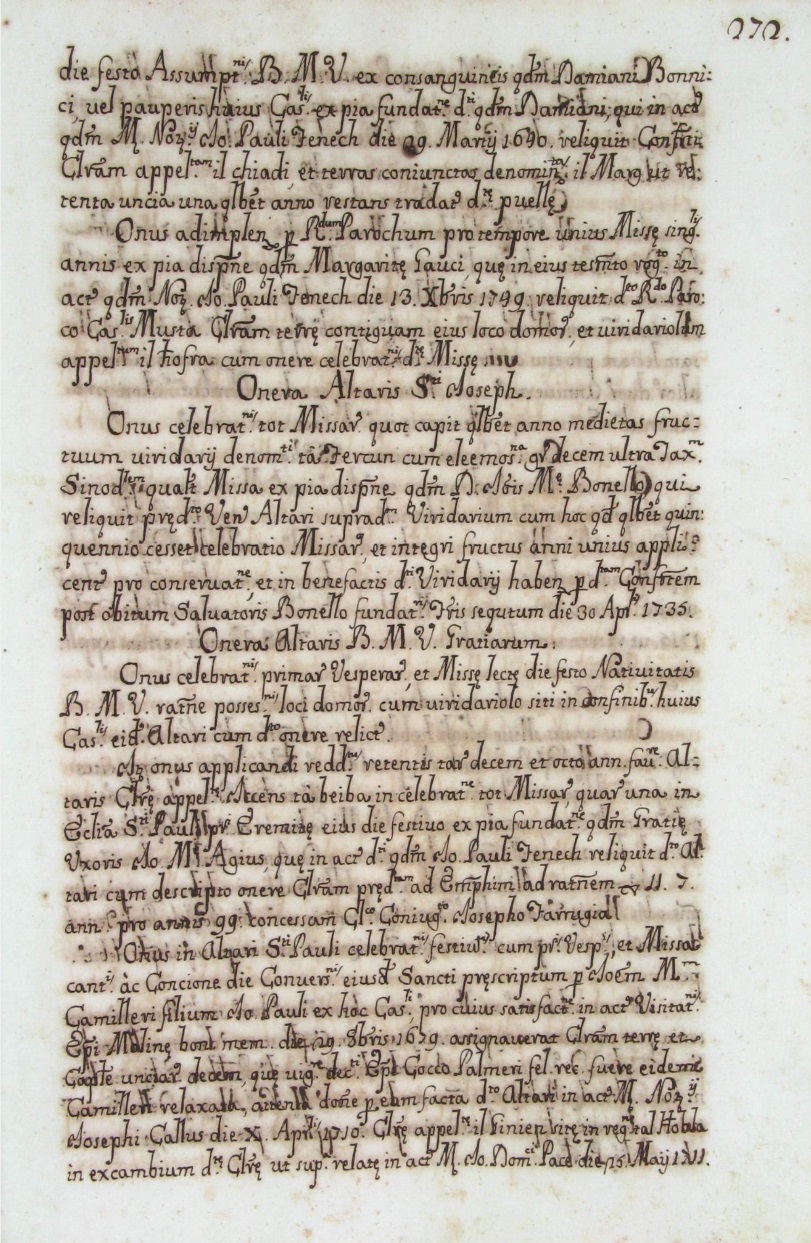 272.
die festo Assumpt.nis B. M. V. ex consanguineis qdm Damiani Bonni:
ci vel pauperis huius Cas.lis ex pia fundat.ne d.ti qdm Damiani, qui in act.
qdm M. Not.ij Jo: Pauli Fenech die 29. Martij 1690. reliquit
Clram appel.tam il chiadi, et terras coniunctas denomin. il Marg ut re:
tenta uncia una qlbet anno restans tradat. d.te puellę
Onus adimplen. p R.dum Parochum pro tempore unius Missę sing.lis
annis ex pia dispne qdm Margaritę Gauci quę in eius testmto in
act. qdm Not. Jo. Pauli Fenech die 13. Xbris 1799. reliquit d.to R.do Paro:
co Cas.lis Musta Clram terrę contiguam eius loco domor., et viridariolum
appel.tum il ħofra cum onere celebrat.nis d.tę Missę
Onera Altaris S.ti Joseph.
Onus celebrat.nis tot Missar. quot capit qlbet anno medietas fruc:
tuum viridarij denom.ti ta Fercun cum eleemos.na gr. decem ultra Tax.m
Sinod.lem qualt Missa ex pia dispne qdm D. Jois M.ę Bonello qui
reliquit pręd.to Ven. Altari suprad.to Viridarium cum hoc qd qlbet quin:
quennio cesset celebratio Missar., et integri fructus anni unius appli:
cent. pro conservat.ne, et in benefactis d.ti Viridarij haben. p d.tam
post obitum Salvatoris Bonello fundat.ris Fris sequtum die 30 Apr. 1735.
Onera Altaris B. M. V. Gratiarum:
Onus celebrat.nis primar. Vesperar., et Missę lectę die festo Nativitatis
B. M. V. ratne posses.nis loci domor. cum viridariolo siti in confinib.s huius
Cas.lis eid. Altari cum d.to onere relict.
It. onus applicandi redd.tus retentis tar. decem et octo ann. fav.re Al:
taris Clrę appel.tę Accens ta beiba in celebrat.ne tot Missar. quar. una in
Ecclia S.ti Pauli pr. Eremitę eius die festivo ex pia fundat.ne qdm Gratię
Uxoris Jo. M.ę Agius, quę in act. d.ti qdm Jo. Pauli Fenech reliquit d.to Al:
tari cum descripto onere Clram pręd.tam ad Emphim ad ratnem 11. 7.
ann. pro annis 99. concessam Cl.co Coniug.to Josepho Farrugia
Onus in Altari S.ti Pauli celebrat.nis festivit. cum pr. Vesp., et Missa
cant. ac Concione die Convers.nis eiusd. Sancti pręscriptum p Joem M.m
Camilleri filium Jo. Pauli ex hoc Cas.li pro cuius satisfact. in act. Visitat.nis
Epi Molinę bonę mem. die 29. 8bris 1679. assignaverat Clram terrę et
unciar. decem, quę vig.re decti Epi Cocco Palmeri fel. rec. fuere eidem
Camilleri relaxata, attenta done p eum facta d.to Altari in act. M. Not.ij
Josephi Callus die X. Apr. 1710. Clrę appel.tę il Finien sitę in reg.ne tal Hobla
in excambium d.tę Clrę ut sup. relatę in act. M. Jo. Dom.ci Pace die 15. Maij 1711.